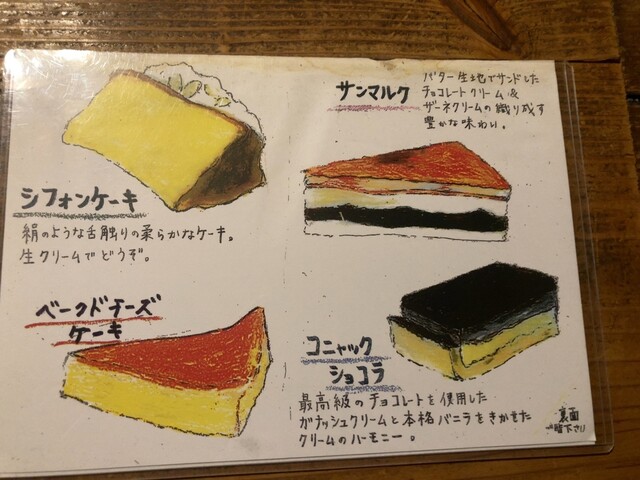 シフォンケーキ
絹のような舌触りの柔らかなケーキ。
生クリームでどうぞ。
サンマルク
バター生地でサンドした
チョコレートクリーム&
ザーネクリームの織り成す
豊かな味わい。
ベークドチーズ
ケーキ
コニャック
ショコラ
最高級のチョコレートを使用した
ガナッシュクリームと本格バニラをきかせた
クリームのハーモニー。
裏面